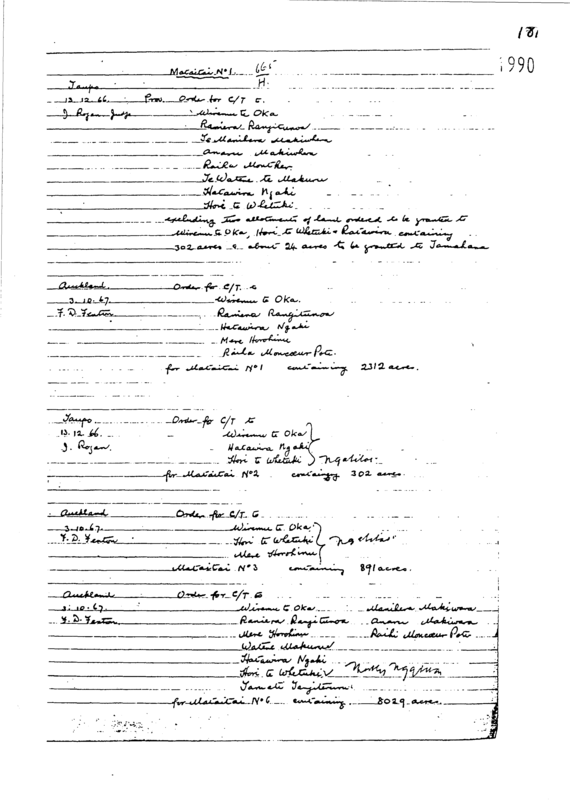 181
1990
Mataitai Nº 1. 665
H.
Taupo
13.12.66. Prov. Order for C/T to
J. Rogan Judge Wiremu te Oka
Raniera Rangitunoa
Te Manihera Makiwhera
Anaru Makiwhera
Raiha
Te Watene te Makuru
Hatawira Ngaki
Hori te Whetuki
excluding two allotments of land ordered to be granted to
Wiremu te Oka, Hori te Whetuki & Hatawira containing
302 acres & about 24 acres to be granted to Tamahana
Auckland Order for C/T. to
3.10.67. Wiremu te Oka.
F. D. Fenton Raniera Rangitunoa
Hatawira Ngaki
Mere Horohinu
Raiha Pota.
for Mataitai Nº 1 containing 2312 acres.
Taupo Order for C/T to
13.12.66. Wiremu te Oka
J. Rogan. Hatawira Ngaki
Hori te Whetuki
for Mataitai Nº 2 containing 302 acres.
Auckland Order for C/T. to
3.10.67. Wiremu te Oka.
F. D. Fenton Hori te Whetuki
Mere Horohinu
Mataitai Nº 3 containing 891 acres.
Auckland Order for C/T to
3.10.67. Wiremu te Oka Manihera Makiwara
F. D. Fenton Raniera Rangitunoa Anaru Makiwara
Mere Horohinu Raihi Pota
Watene Makuru
Hatawira Ngaki
Hori te Whetuki
Tamati
for Mataitai Nº 6 containing 8029 acres.